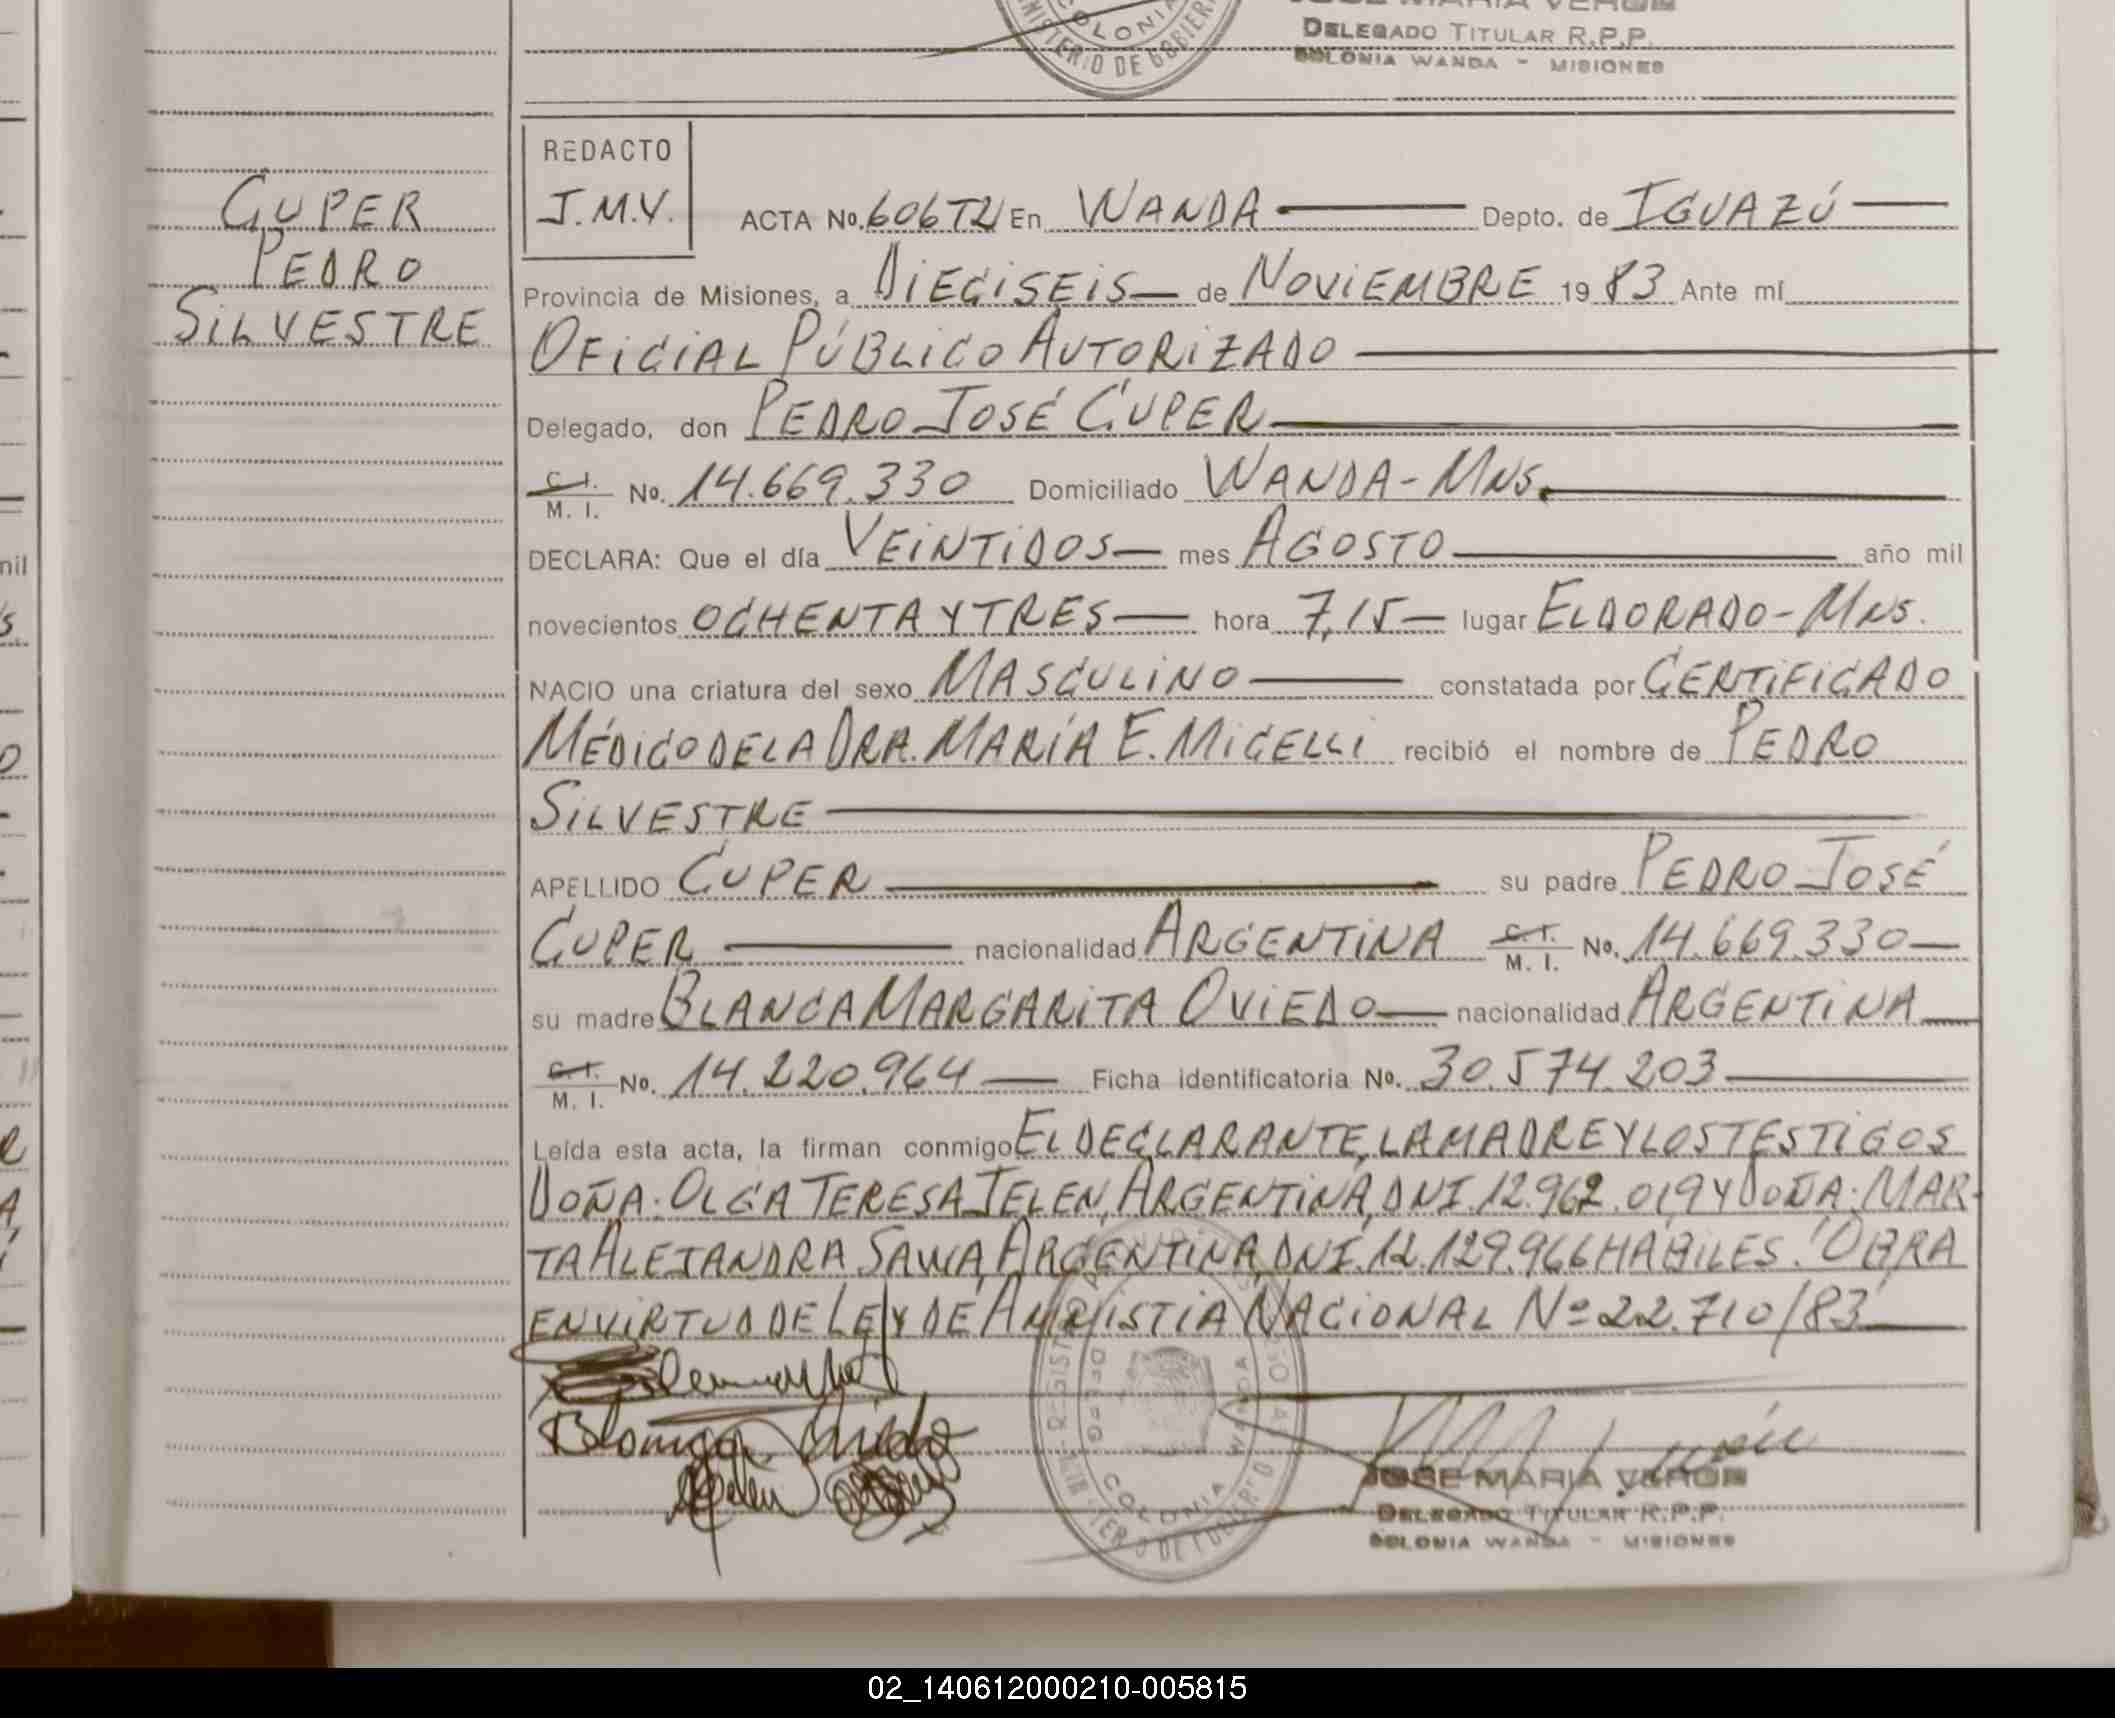 COLONIA
MINISTERIO DE GOBIERNO
DELEGADO TITULAR R.P.P.
COLONIA WANDA - MISIONES
CUPER
PEDRO
SILVESTRE
REDACTO
J.M.V.
ACTA No. 606T2 En WANDA Depto. de IGUAZÚ
Provincia de Misiones, a DIECISEIS de NOVIEMBRE 19 83 Ante mí
OFICIAL PÚBLICO AUTORIZADO
Delegado, don PEDRO JOSÉ CUPER
C. I. M. I. No. 14.669.330 Domiciliado WANDA-MNS.
DECLARA: Que el día VEINTIDOS mes AGOSTO año mil
novecientos OCHENTA Y TRES hora 7,15 lugar ELDORADO-MNS.
NACIO una criatura del sexo MASCULINO constatada por CERTIFICADO
MÉDICO DE LA DRA. MARÍA E. MICELLI recibió el nombre de PEDRO
SILVESTRE
APELLIDO CUPER su padre PEDRO JOSÉ
CUPER nacionalidad ARGENTINA C. I. M. I. No. 14.669.330
su madre BLANCA MARGARITA OVIEDO nacionalidad ARGENTINA
C. I. M. I. No. 14.220.964 Ficha identificatoria No. 30.574.203
Leída esta acta, la firman conmigo EL DECLARANTE, LA MADRE Y LOS TESTIGOS
DOÑA: OLGA TERESA JELEN, ARGENTINA, DNI. 12.962.019 Y DOÑA: MAR-
TA ALEJANDRA SAWA, ARGENTINA, DNI. 12.129.966 HÁBILES. "OBRA
EN VIRTUD DE LEY DE AMNISTIA NACIONAL Nº 22.710/83"
Blanca Oviedo
COLONIA WANDA
JOSE MARIA VERON
DELEGADO TITULAR R.P.P.
COLONIA WANDA - MISIONES
02_140612000210-005815